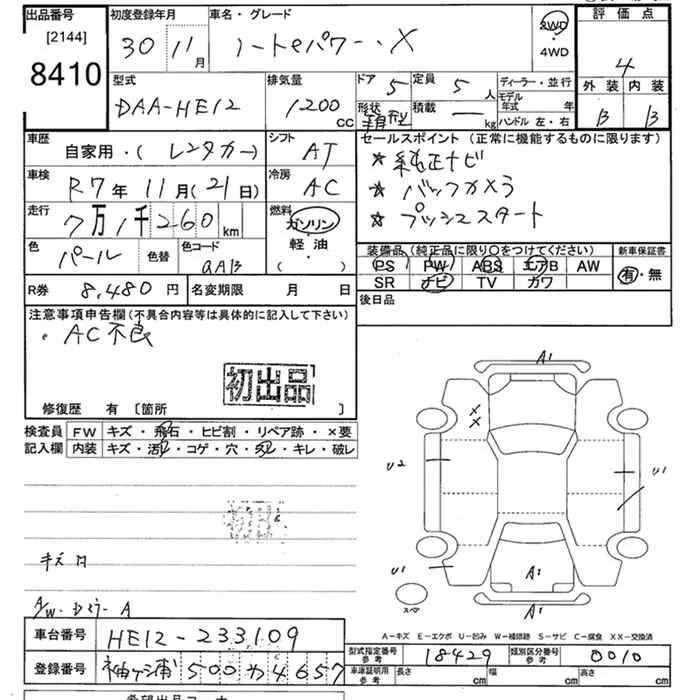 出品番号
[2144]
8410
初度登録年月
30 11月
車名・グレード
ノートeパワー・X
2WD
・
4WD
評価点
4
外装 内装
B B
型式
DAA-HE12
排気量
1200
CC
ドア 5
形状
定員 5人
積載 ー kg
ディーラー・並行
モデル年式 年
ハンドル 左・右
車歴
自家用・(レンタカー)
シフト
AT
車検
R7年11月(21日)
冷房
AC
走行
7万1千260km
燃料
ガソリン
・
軽油
( ・ )
色
パール
色替
色コード
QAB
R券 8,480円
名変期限 月 日
セールスポイント(正常に機能するものに限ります)
★純正ナビ
★バックカメラ
★プッシュスタート
装備品(純正品に限り〇をつけてください)
PS PW ABS エアB AW
SR ナビ TV カワ
新車保証書
有・無
後日品
注意事項申告欄(不具合内容等は具体的に記入して下さい)
・AC不良
初出品
修復歴 有〔箇所 〕
検査員
記入欄
FW キズ・飛石・ヒビ割・リペア跡・×要
内装 キズ・汚れ・コゲ・穴・スレ・キレ・破レ
キズ
A1
××
U2
U1
U1
A1
A1
スペア
A-キズ E-エクボ U-凹み W-補修跡 S-サビ C-腐食 XX-交換済
車台番号
HE12-233109
登録番号
袖ヶ浦500か4657
型式指定番号
参考
18429
類別区分番号
参考
0010
車庫証明用
参考
長さ cm
幅 cm
高さ cm